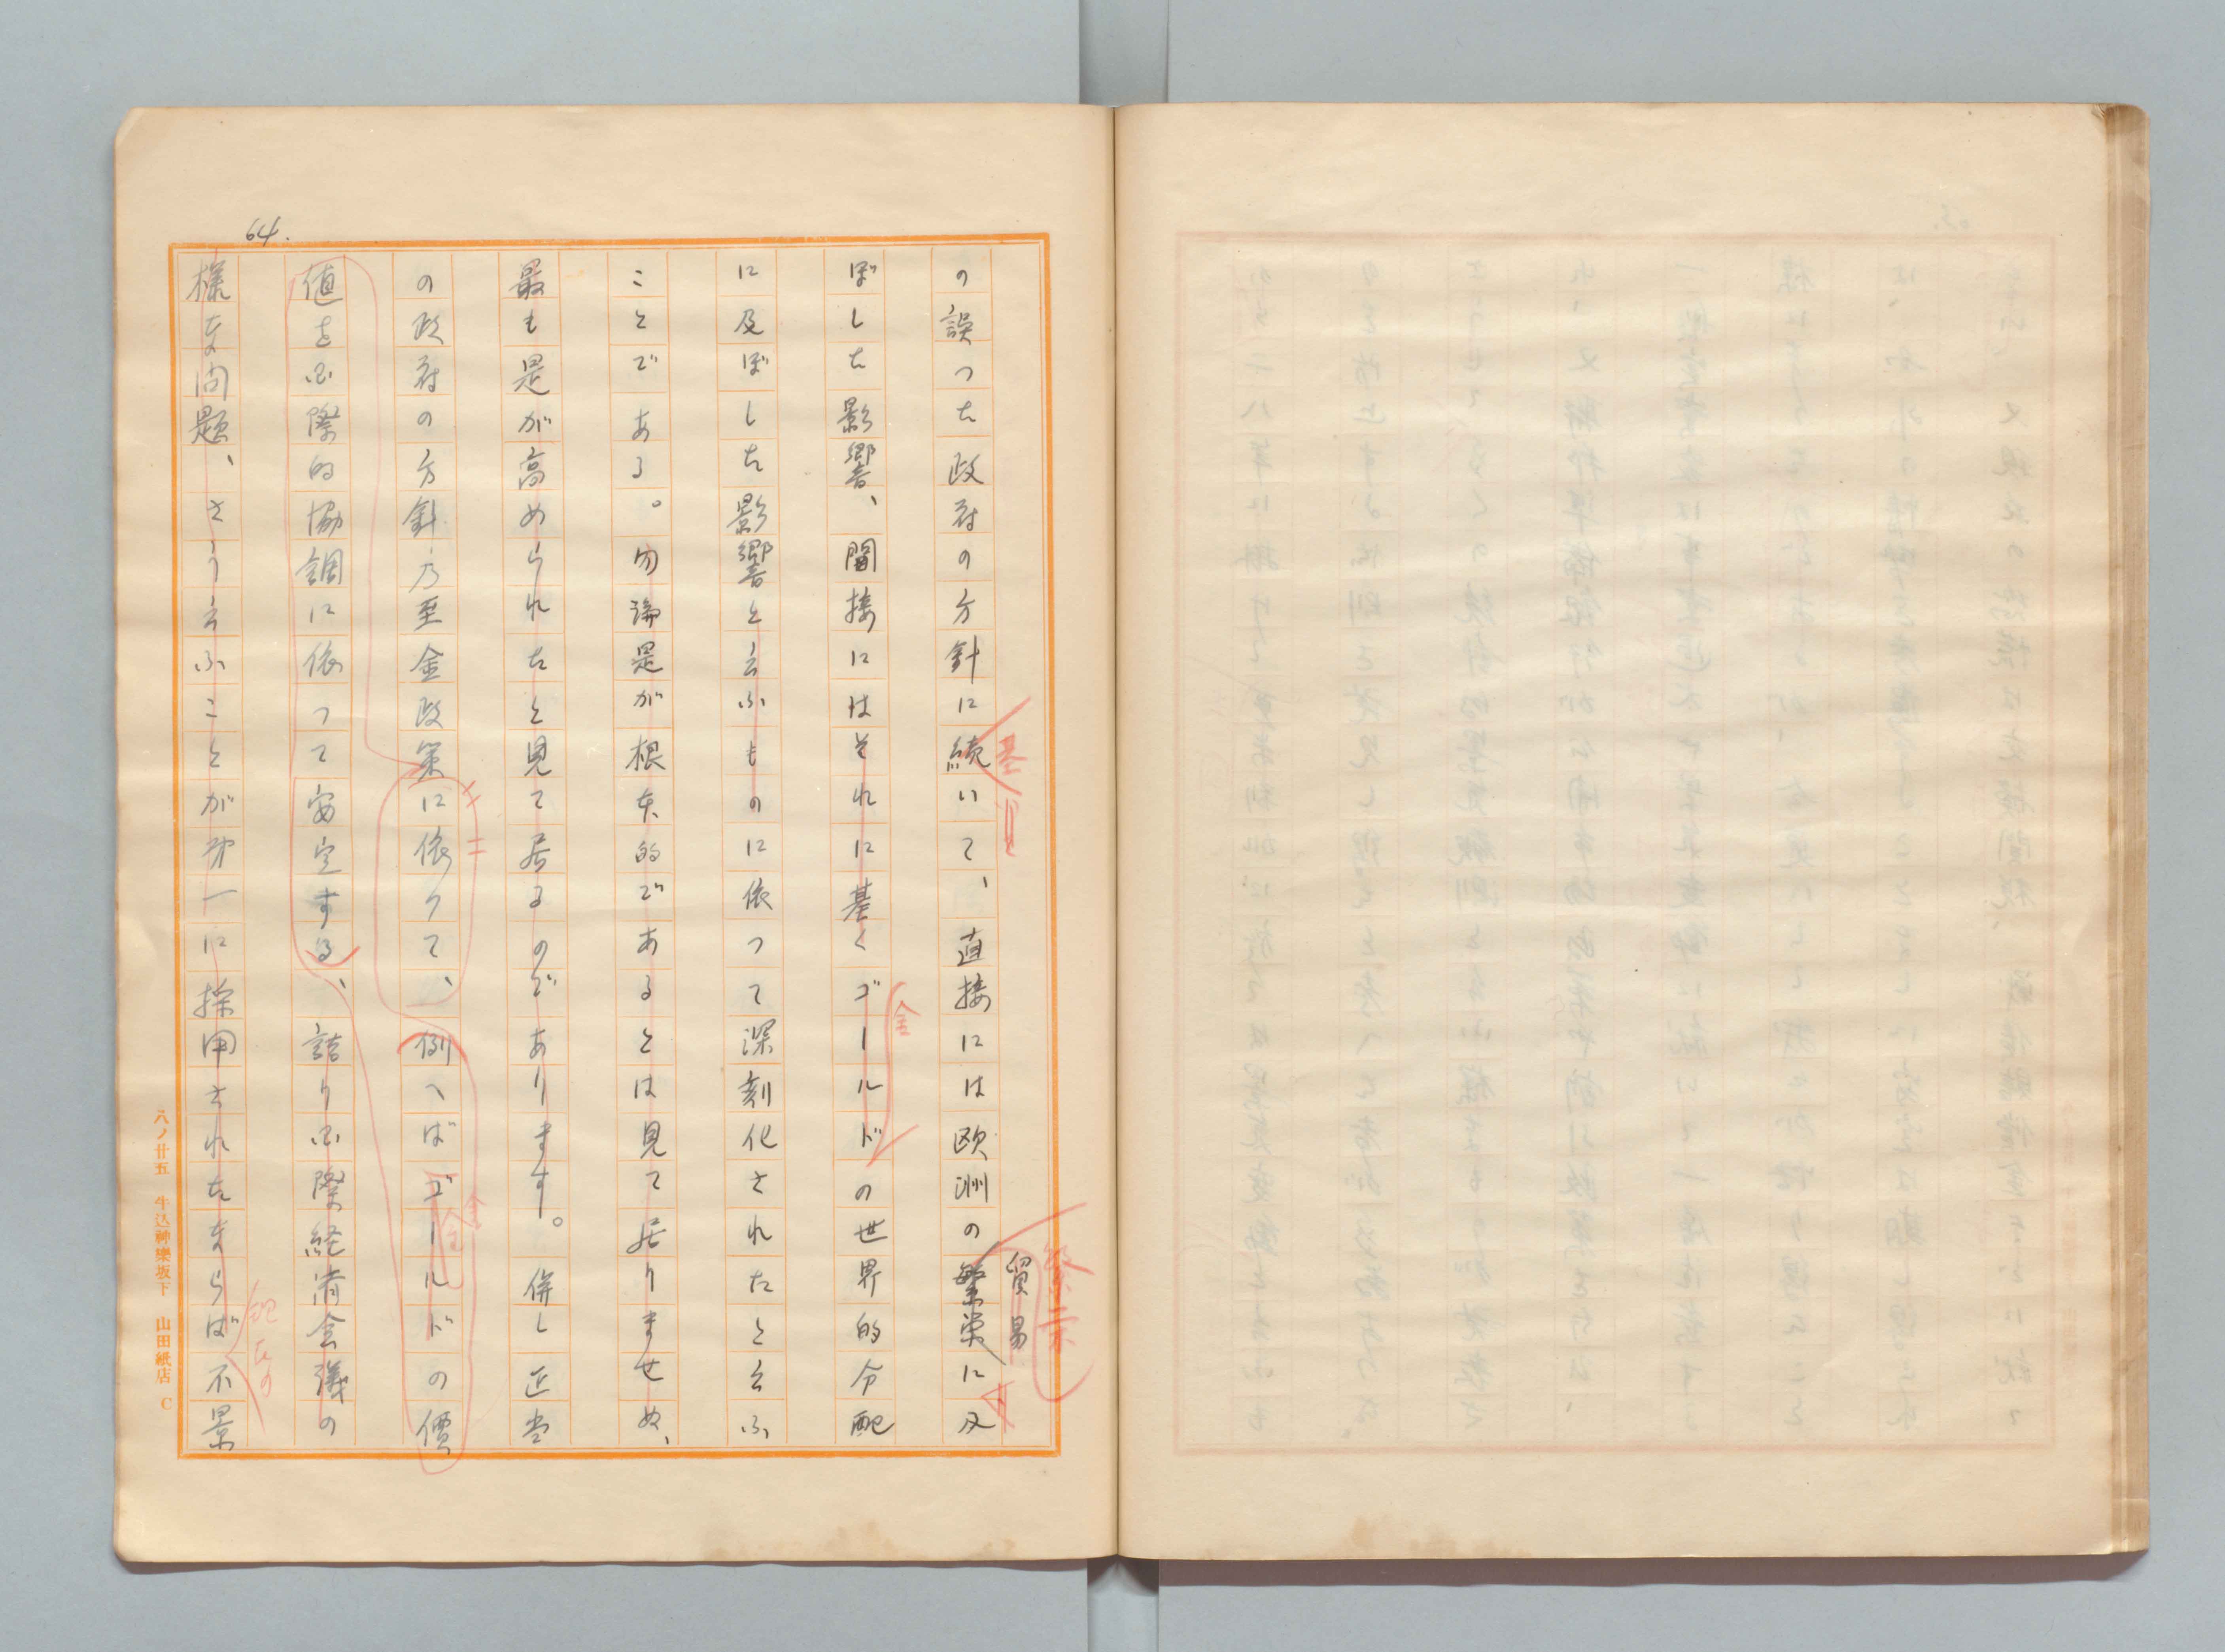 64.
の誤つた政府の方針に続いて、直接には欧洲の繁栄に及
基
貿易
繁栄
ぼした影響、間接にはそれに基くゴールドの世界的分配
金
に及ぼした影響と云ふものに依つて深刻化されたと云ふ
ことである。勿論是が根本的であるとは見て居りませぬ、
最も是が高められたと見て居るのであります。併し近当
の政府の方針乃至金政策に依りて、例へばゴールドの價
金
値を国際的協調に依つて安定する、詰り国際経済会議の
様な問題、さう云ふことが第一に採用されたならば不景
八ノ廿五 牛込神樂坂下 山田紙店 C